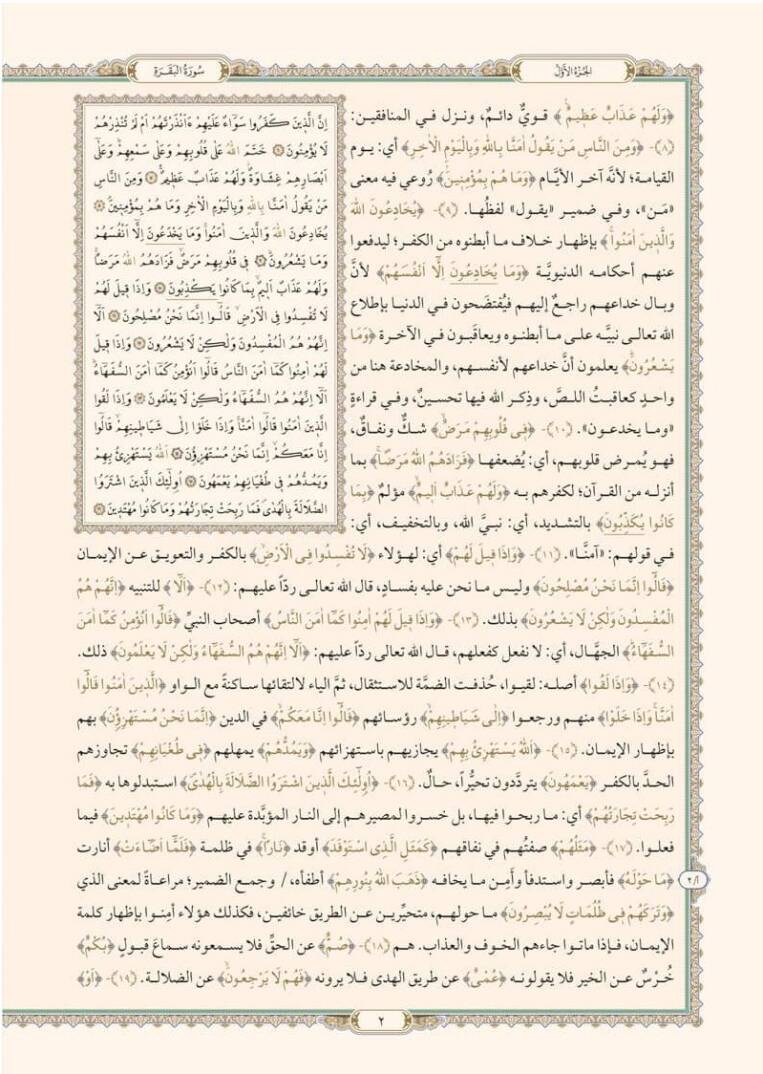 الجُزْءُ الأَوَّلُ
سُورَةُ البَقَرَةِ
﴿وَلَهُمْ عَذَابٌ عَظِيمٌ﴾ قويٌّ دائمٌ، ونزل في المنافقين:
(٨)- ﴿وَمِنَ النَّاسِ مَنْ يَقُولُ اٰمَنَّا بِاللهِ وَبِالْيَوْمِ الْاٰخِرِ﴾ أي: يوم
القيامة؛ لأنَّه آخر الأيَّام ﴿وَمَا هُمْ بِمُؤْمِنِينَ﴾ رُوعي فيه معنى
«مَن»، وفي ضمير «يقول» لفظُها. (٩)- ﴿يُخَادِعُونَ اللهَ
وَالَّذِينَ اٰمَنُوا﴾ بإظهار خلاف ما أبطنوه من الكفر؛ ليدفعوا
عنهم أحكامه الدنيويَّة ﴿وَمَا يُخَادِعُونَ اِلَّٓا اَنْفُسَهُمْ﴾ لأنَّ
وبال خداعهم راجعٌ إليهم فيُفتَضحون في الدنيا بإطلاع
الله تعالى نبيَّه على ما أبطنوه ويعاقَبون في الآخرة ﴿وَمَا
يَشْعُرُونَ﴾ يعلمون أنَّ خداعهم لأنفسهم، والمخادعة هنا من
واحدٍ كعاقبتُ اللصَّ، وذِكر الله فيها تحسينٌ، وفي قراءةٍ
«وما يخدعون». (١٠)- ﴿فِي قُلُوبِهِمْ مَرَضٌ﴾ شكٌّ ونفاقٌ،
فهو يُمرض قلوبهم، أي: يُضعفها ﴿فَزَادَهُمُ اللهُ مَرَضًا﴾ بما
أنزله من القرآن؛ لكفرهم به ﴿وَلَهُمْ عَذَابٌ اَلِيمٌ﴾ مؤلمٌ ﴿بِمَا
كَانُوا يُكَذِّبُونَ﴾ بالتشديد، أي: نبيَّ الله، وبالتخفيف، أي:
اِنَّ الَّذِينَ كَفَرُوا سَوَٓاءٌ عَلَيْهِمْ ءَاَنْذَرْتَهُمْ اَمْ لَمْ تُنْذِرْهُمْ
لَا يُؤْمِنُونَ ۝ خَتَمَ اللهُ عَلٰى قُلُوبِهِمْ وَعَلٰى سَمْعِهِمْ وَعَلٰٓى
اَبْصَارِهِمْ غِشَاوَةٌ وَلَهُمْ عَذَابٌ عَظِيمٌ ۝ وَمِنَ النَّاسِ
مَنْ يَقُولُ اٰمَنَّا بِاللهِ وَبِالْيَوْمِ الْاٰخِرِ وَمَا هُمْ بِمُؤْمِنِينَ ۝
يُخَادِعُونَ اللهَ وَالَّذِينَ اٰمَنُوا وَمَا يَخْدَعُونَ اِلَّٓا اَنْفُسَهُمْ
وَمَا يَشْعُرُونَ ۝ فِي قُلُوبِهِمْ مَرَضٌ فَزَادَهُمُ اللهُ مَرَضًا
وَلَهُمْ عَذَابٌ اَلِيمٌ بِمَا كَانُوا يَكْذِبُونَ ۝ وَاِذَا قِيلَ لَهُمْ
لَا تُفْسِدُوا فِي الْاَرْضِ قَالُٓوا اِنَّمَا نَحْنُ مُصْلِحُونَ ۝ اَلَٓا
اِنَّهُمْ هُمُ الْمُفْسِدُونَ وَلٰكِنْ لَا يَشْعُرُونَ ۝ وَاِذَا قِيلَ
لَهُمْ اٰمِنُوا كَمَٓا اٰمَنَ النَّاسُ قَالُٓوا اَنُؤْمِنُ كَمَٓا اٰمَنَ السُّفَهَٓاءُ
اَلَٓا اِنَّهُمْ هُمُ السُّفَهَٓاءُ وَلٰكِنْ لَا يَعْلَمُونَ ۝ وَاِذَا لَقُوا
الَّذِينَ اٰمَنُوا قَالُٓوا اٰمَنَّا وَاِذَا خَلَوْا اِلٰى شَيَاطِينِهِمْ قَالُٓوا
اِنَّا مَعَكُمْ اِنَّمَا نَحْنُ مُسْتَهْزِؤُنَ ۝ اَللهُ يَسْتَهْزِئُ بِهِمْ
وَيَمُدُّهُمْ فِي طُغْيَانِهِمْ يَعْمَهُونَ ۝ اُولٰٓئِكَ الَّذِينَ اشْتَرَوُا
الضَّلَالَةَ بِالْهُدٰى فَمَا رَبِحَتْ تِجَارَتُهُمْ وَمَا كَانُوا مُهْتَدِينَ ۝
في قولهم: «آمنَّا». (١١)- ﴿وَاِذَا قِيلَ لَهُمْ﴾ أي: لهؤلاء ﴿لَا تُفْسِدُوا فِي الْاَرْضِ﴾ بالكفر والتعويق عن الإيمان
﴿قَالُٓوا اِنَّمَا نَحْنُ مُصْلِحُونَ﴾ وليس ما نحن عليه بفسادٍ، قال الله تعالى ردّاً عليهم: (١٢)- ﴿اَلَٓا﴾ للتنبيه ﴿اِنَّهُمْ هُمُ
الْمُفْسِدُونَ وَلٰكِنْ لَا يَشْعُرُونَ﴾ بذلك. (١٣)- ﴿وَاِذَا قِيلَ لَهُمْ اٰمِنُوا كَمَٓا اٰمَنَ النَّاسُ﴾ أصحاب النبيِّ ﴿قَالُٓوا اَنُؤْمِنُ كَمَٓا اٰمَنَ
السُّفَهَٓاءُ﴾ الجهَّال، أي: لا نفعل كفعلهم، قال الله تعالى ردّاً عليهم: ﴿اَلَٓا اِنَّهُمْ هُمُ السُّفَهَٓاءُ وَلٰكِنْ لَا يَعْلَمُونَ﴾ ذلك.
(١٤)- ﴿وَاِذَا لَقُوا﴾ أصله: لقيوا، حُذفت الضمَّة للاستثقال، ثمَّ الياء لالتقائها ساكنةً مع الواو ﴿الَّذِينَ اٰمَنُوا قَالُٓوا
اٰمَنَّا وَاِذَا خَلَوْا﴾ منهم ورجعوا ﴿اِلٰى شَيَاطِينِهِمْ﴾ رؤسائهم ﴿قَالُٓوا اِنَّا مَعَكُمْ﴾ في الدين ﴿اِنَّمَا نَحْنُ مُسْتَهْزِؤُنَ﴾ بهم
بإظهار الإيمان. (١٥)- ﴿اَللهُ يَسْتَهْزِئُ بِهِمْ﴾ يجازيهم باستهزائهم ﴿وَيَمُدُّهُمْ﴾ يمهلهم ﴿فِي طُغْيَانِهِمْ﴾ تجاوزهم
الحدَّ بالكفر ﴿يَعْمَهُونَ﴾ يتردَّدون تحيُّراً، حالٌ. (١٦)- ﴿اُولٰٓئِكَ الَّذِينَ اشْتَرَوُا الضَّلَالَةَ بِالْهُدٰى﴾ استبدلوها به ﴿فَمَا
رَبِحَتْ تِجَارَتُهُمْ﴾ أي: ما ربحوا فيها، بل خسروا لمصيرهم إلى النار المؤبَّدة عليهم ﴿وَمَا كَانُوا مُهْتَدِينَ﴾ فيما
فعلوا. (١٧)- ﴿مَثَلُهُمْ﴾ صفتُهم في نفاقهم ﴿كَمَثَلِ الَّذِي اسْتَوْقَدَ﴾ أوقد ﴿نَارًا﴾ في ظلمة ﴿فَلَمَّٓا اَضَٓاءَتْ﴾ أنارت
﴿مَا حَوْلَهُ﴾ فأبصر واستدفأ وأمِن ما يخافه ﴿ذَهَبَ اللهُ بِنُورِهِمْ﴾ أطفأه، / وجمع الضمير؛ مراعاةً لمعنى الذي
أ/٢
﴿وَتَرَكَهُمْ فِي ظُلُمَاتٍ لَا يُبْصِرُونَ﴾ ما حولهم، متحيِّرين عن الطريق خائفين، فكذلك هؤلاء أمِنوا بإظهار كلمة
الإيمان، فإذا ماتوا جاءهم الخوف والعذاب. هم (١٨)- ﴿صُمٌّ﴾ عن الحقِّ فلا يسمعونه سماعَ قبولٍ ﴿بُكْمٌ﴾
خُرْسٌ عن الخير فلا يقولونه ﴿عُمْيٌ﴾ عن طريق الهدى فلا يرونه ﴿فَهُمْ لَا يَرْجِعُونَ﴾ عن الضلالة. (١٩)- ﴿اَوْ﴾
٢